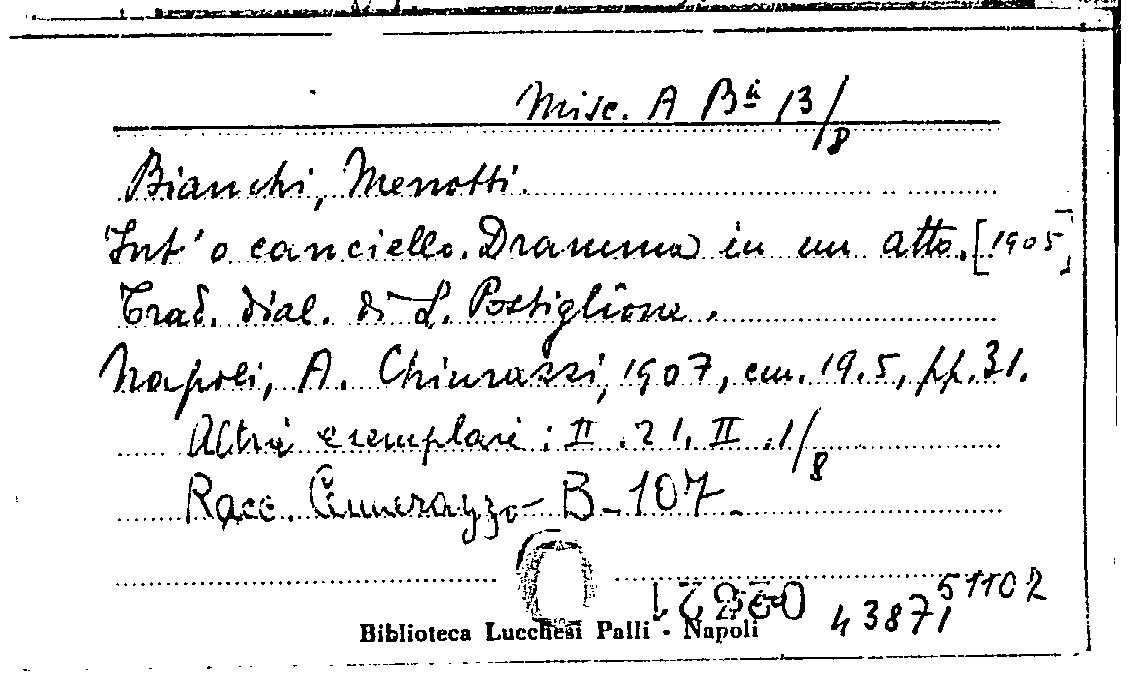 Misc. A Bª 13/8
Bianchi, Menotti.
'Int' 'o canciello. Dramma in un atto. [1905]
Trad. dial. di L. Postiglione.
Napoli, A. Chiurazzi, 1907, cm. 19.5, pp. 31.
Altri esemplari: II. 21. II. 1/8
Racc. Cimerazzo B. 107.
51102
43871
Biblioteca Lucchesi Palli - Napoli